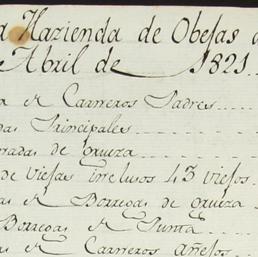 a Hazienda de Obejas d
e Abril de 1821
a de Carneros Padres
das Principales
rradas de cruza
de viejas inclusos 43 viejos
as de Borregas de cruza
Borregas de Punta
as de Carneros añejos